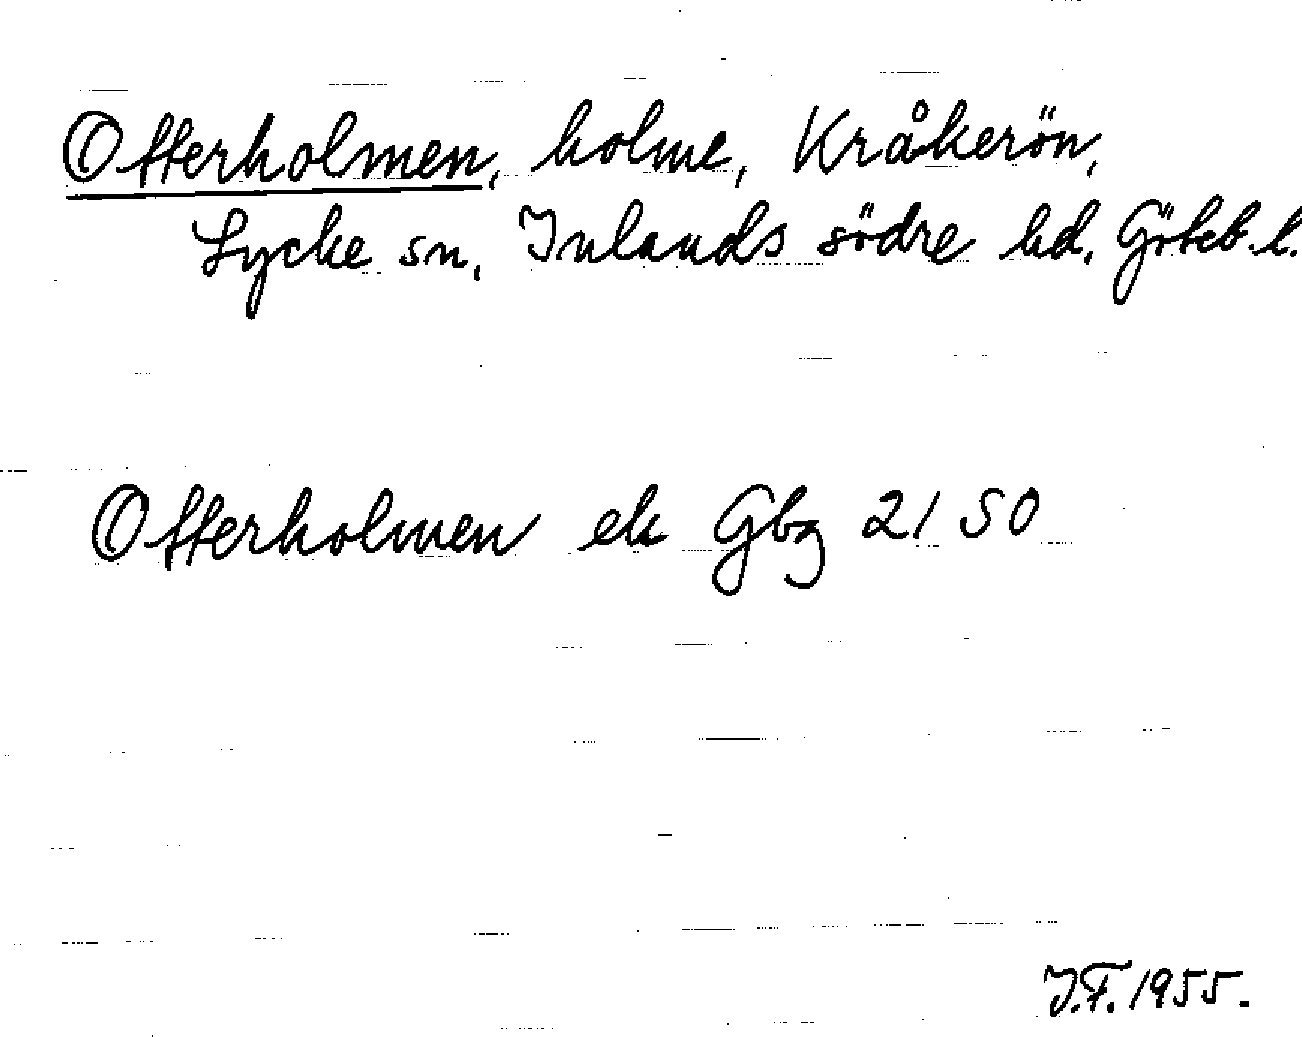 Offerholmen, holme, Kråkerön,
Lycke sn, Inlands södre hd, Göteb. l.
Offerholmen ek Gbg 21 50
J.F. 1955.